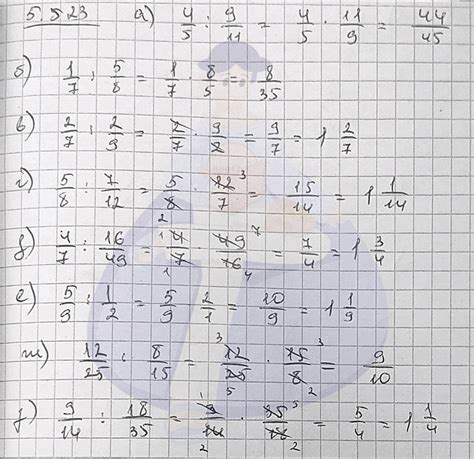 5.523 а) 4/5 : 9/11 = 4/5 · 11/9 = 44/45
б) 1/7 : 5/8 = 1/7 · 8/5 = 8/35
в) 2/7 : 2/9 = 2/7 · 9/2 = 9/7 = 1 2/7
г) 5/8 : 7/12 = 5/8 · 12/7 = 15/14 = 1 1/14
д) 4/7 : 16/49 = 4/7 · 49/16 = 7/4 = 1 3/4
е) 5/9 : 1/2 = 5/9 2/1 = 10/9 = 1 1/9
ж) 12/25 : 8/15 = 12/25 · 15/8 = 9/10
з) 9/14 : 18/35 = 9/14 · 35/18 = 5/4 = 1 1/4